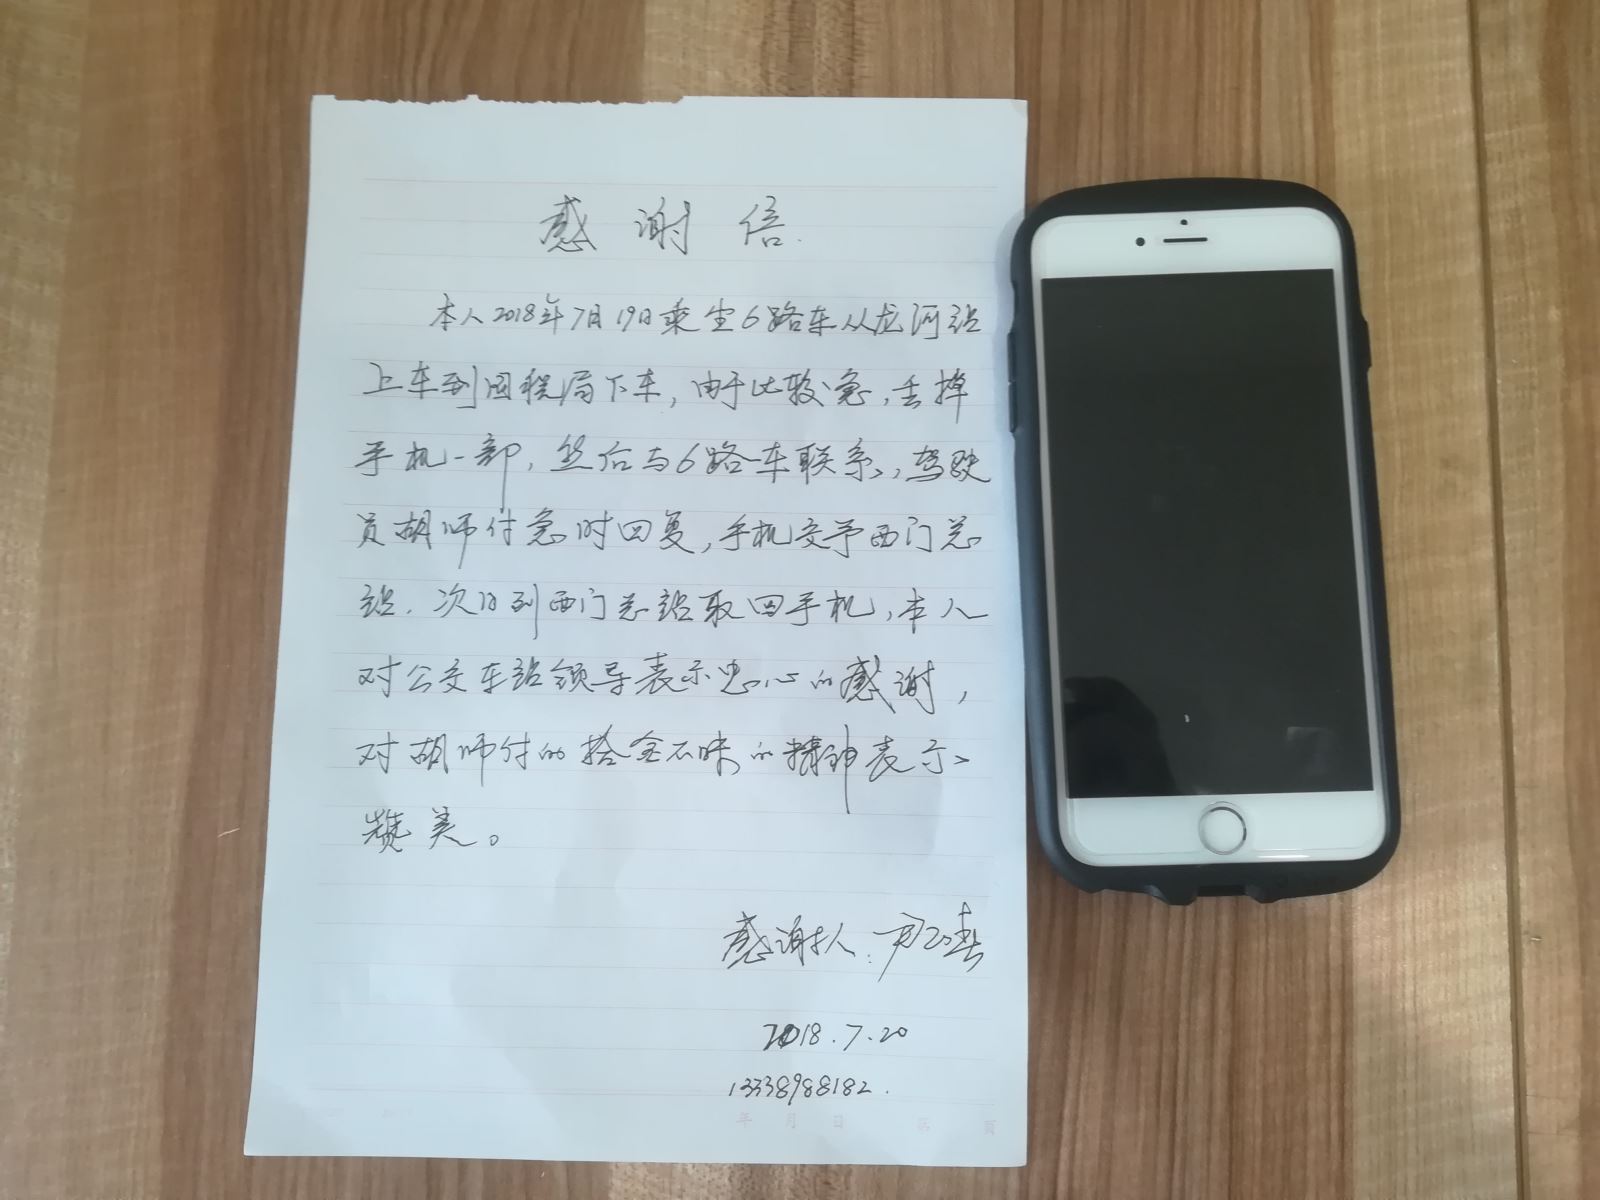 感谢信.
本人2018年7月19日乘坐6路车从龙河站
上车到国税局下车,由于比较急,丢掉
手机一部,然后与6路车联系,驾驶
员胡师付急时回复,手机交予西门总
站.次日到西门总站取回手机,本人
对公交车站领导表示忠心的感谢,
对胡师付的拾金不昧的精神表示
赞美。
感谢人:尹
2018.7.20
13338988182.
年 月 日 第 页